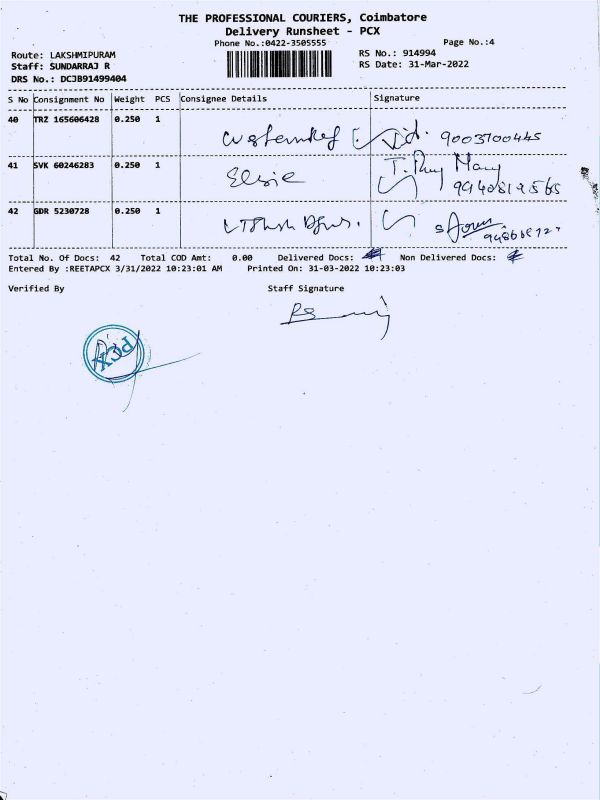 THE PROFESSIONAL COURIERS, Coimbatore
Delivery Runsheet - PCX
Phone No.:0422-3505555 Page No.:4
Route: LAKSHMIPURAM RS No.: 914994
Staff: SUNDARRAJ R RS Date: 31-Mar-2022
DRS No.: DCJB91499404
S No Consignment No Weight PCS Consignee Details Signature
40 TRZ 165606428 0.250 1
9003700445
41 SVK 60246283 0.250 1
Elsie
42 GDR 5230728 0.250 1
Total No. Of Docs: 42 Total COD Amt: 0.00 Delivered Docs: Non Delivered Docs:
Entered By :REETAPCX 3/31/2022 10:23:01 AM Printed On: 31-03-2022 10:23:03
Verified By Staff Signature
PCX